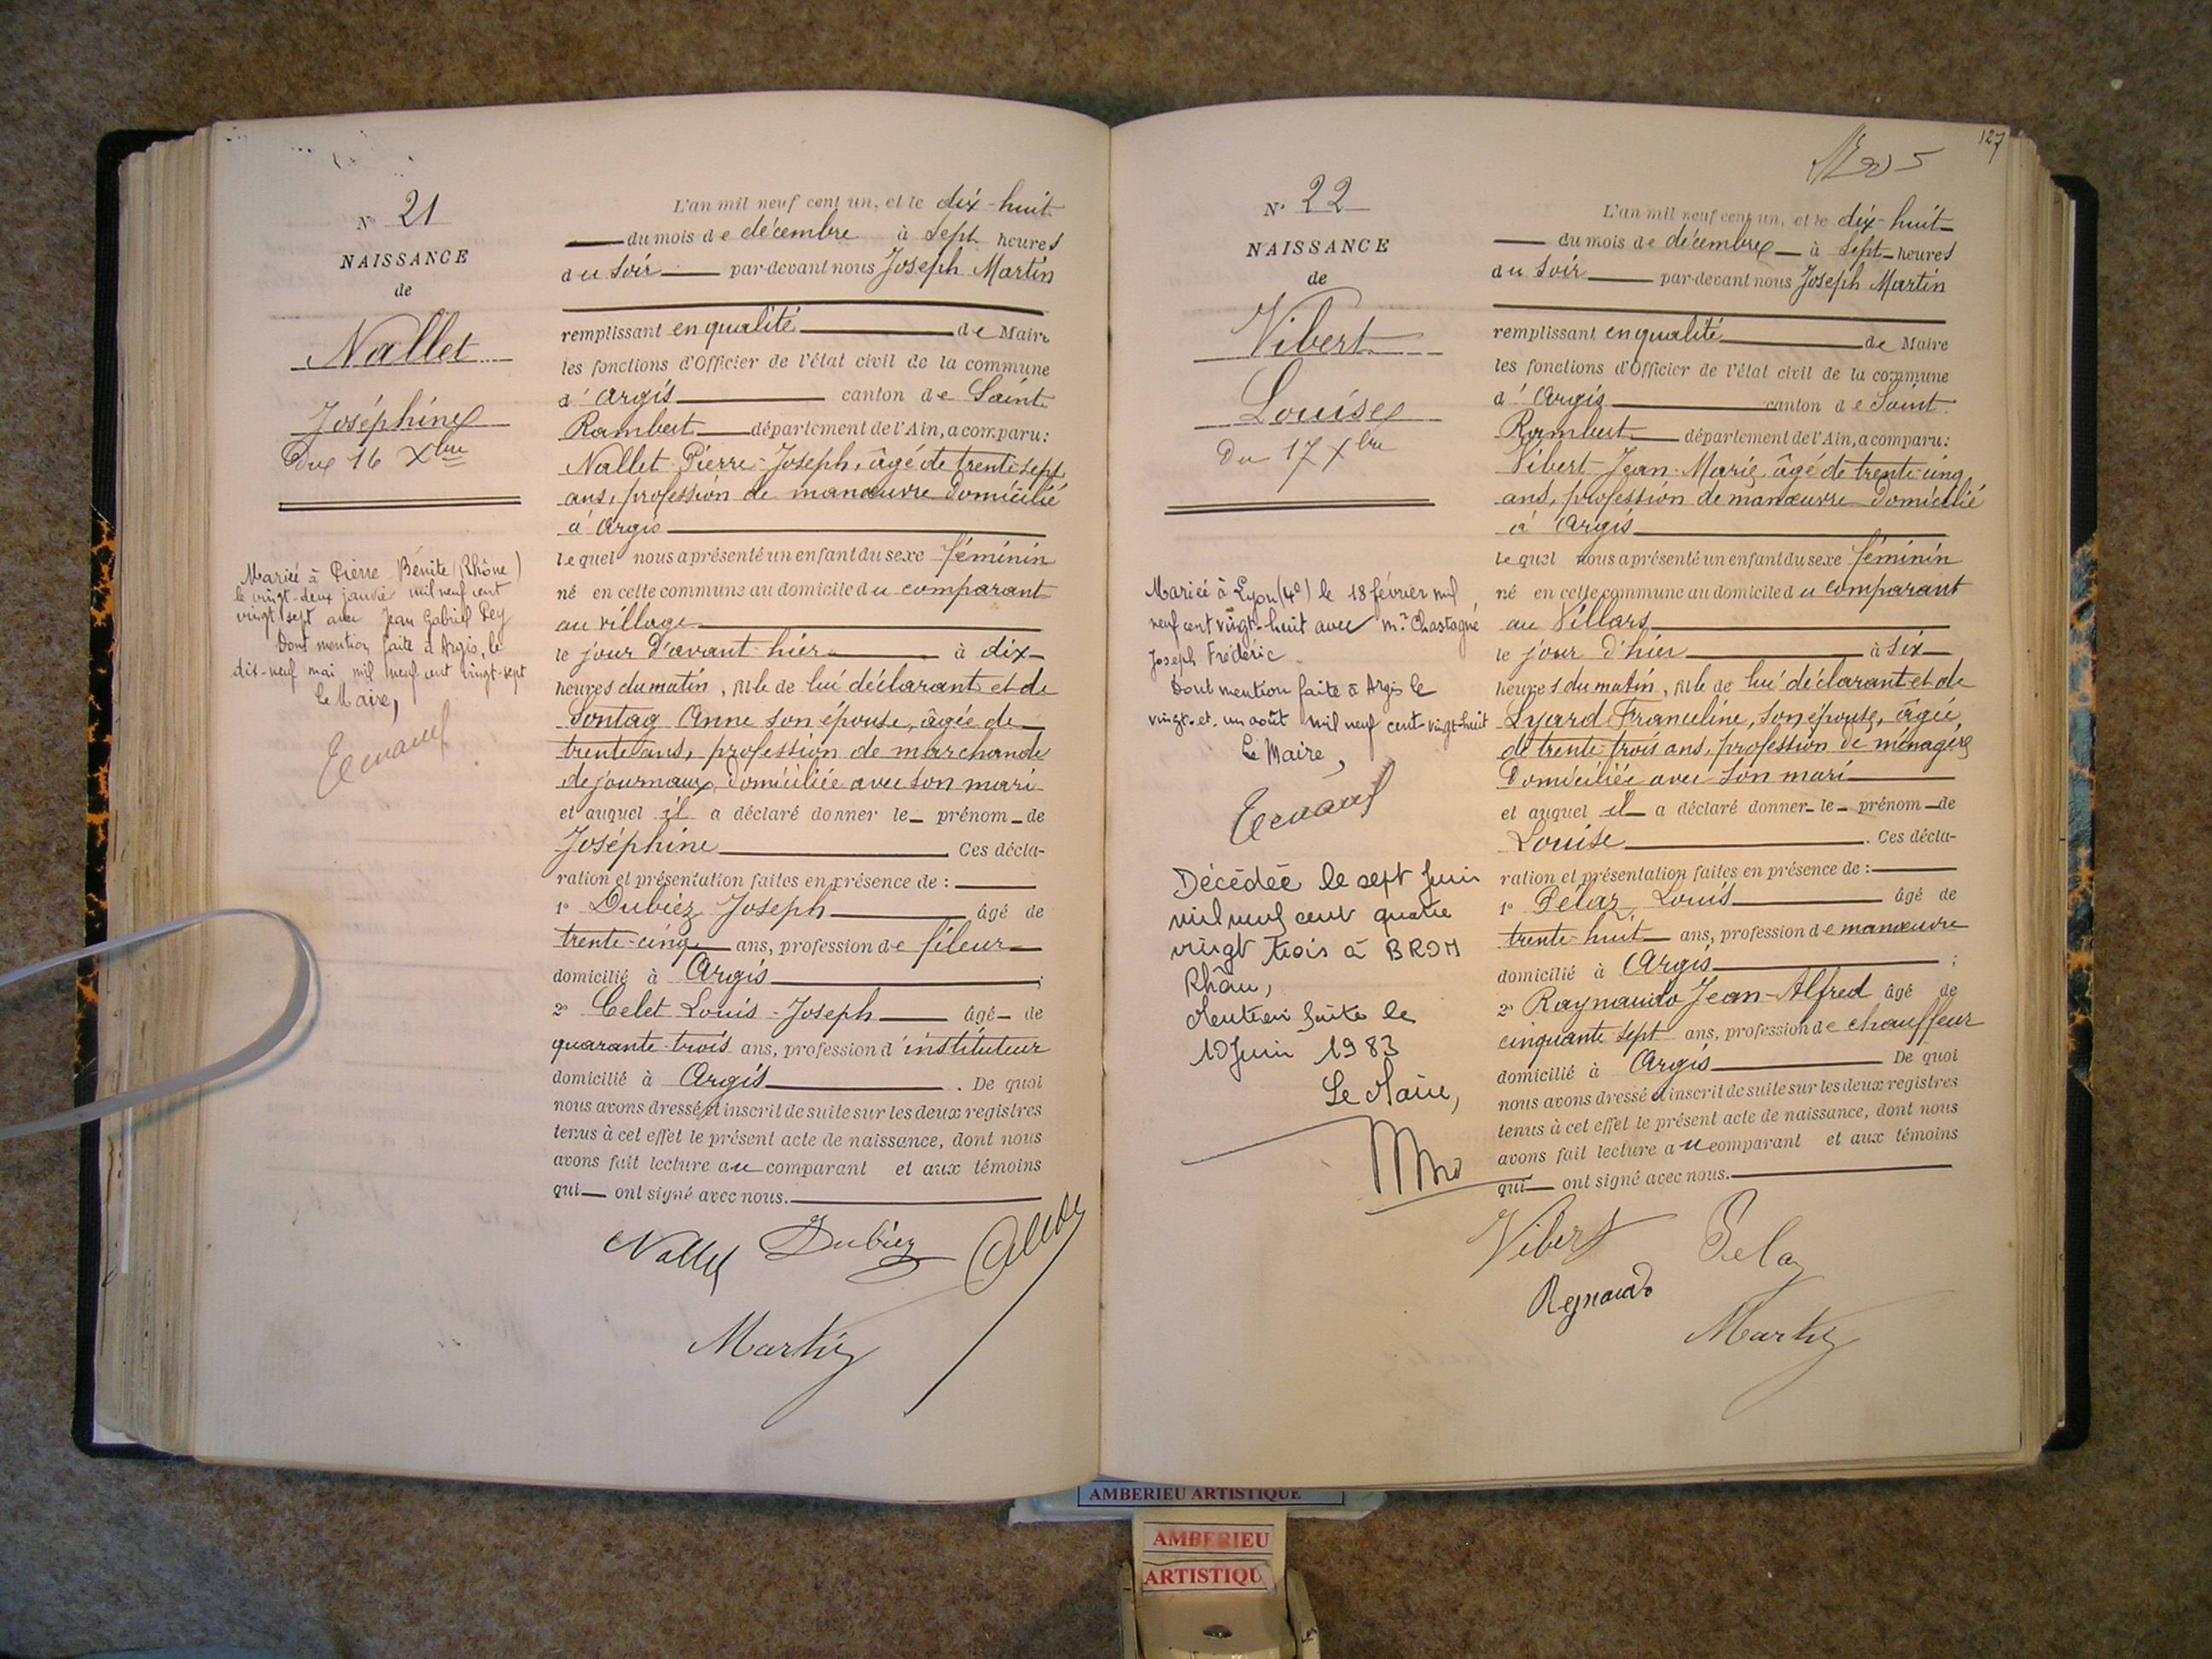 N° 21
NAISSANCE
de
Nallet
Joséphine
Du 16 Xbre
Mariée à Pierre-Bénite (Rhône)
le vingt-deux janvier mil neuf cent
vingt sept avec Jean Gabriel Pey
Dont mention faite à Argis, le
dix-neuf mai mil neuf cent vingt-sept
Le Maire,
L'an mil neuf cent un, et le dix-huit
du mois de décembre à sept heures
du soir par-devant nous Joseph Martin
remplissant en qualité de Maire
les fonctions d'Officier de l'état civil de la commune
d'Argis canton de Saint
Rambert département de l'Ain, a comparu:
Nallet Pierre-Joseph, âgé de trente-sept
ans, profession de manœuvre domicilié
à Argis
lequel nous a présenté un enfant du sexe féminin
né en cette commune au domicile du comparant
au village
le jour d'avant-hier à dix
heures du matin, fille de lui déclarant et de
Sontag Anne son épouse, âgée de
trente ans, profession de marchande
de journaux, domiciliée avec son mari
et auquel il a déclaré donner le prénom de
Joséphine Ces décla-
ration et présentation faites en présence de :
1° Dubiez Joseph âgé de
trente-cinq ans, profession de fileur
domicilié à Argis ;
2° Celet Louis-Joseph âgé de
quarante-trois ans, profession d'instituteur
domicilié à Argis . De quoi
nous avons dressé et inscrit de suite sur les deux registres
tenus à cet effet le présent acte de naissance, dont nous
avons fait lecture au comparant et aux témoins
qui ont signé avec nous.
Nallet Dubiez Celet
Martin
127
N° 22
NAISSANCE
de
Vibert
Louise
Du 17 Xbre
Mariée à Lyon (4e) le 18 février mil
neuf cent vingt-huit avec Mr Chastagné
Joseph Frédéric
Dont mention faite à Argis le
vingt-et-un août mil neuf cent-vingt-huit
Le Maire,
Décédée le sept Juin
mil neuf cent quatre
vingt trois à BRON
Rhône,
Mention faite le
10 Juin 1983
Le Maire,
L'an mil neuf cent un, et le dix-huit
du mois de décembre à sept heures
du soir par-devant nous Joseph Martin
remplissant en qualité de Maire
les fonctions d'Officier de l'état civil de la commune
d'Argis canton de Saint
Rambert département de l'Ain, a comparu:
Vibert Jean-Marie âgé de trente-cinq
ans, profession de manœuvre domicilié
à Argis
lequel nous a présenté un enfant du sexe féminin
né en cette commune au domicile du comparant
au Villars
le jour d'hier à six
heures du matin, fille de lui déclarant et de
Lyard Franceline, son épouse, âgée
de trente-trois ans, profession de ménagère
domiciliée avec son mari
et auquel il a déclaré donner le prénom de
Louise . Ces décla-
ration et présentation faites en présence de :
1° Pelaz Louis âgé de
trente-huit ans, profession de manœuvre
domicilié à Argis ;
2° Raynaudo Jean-Alfred âgé de
cinquante sept ans, profession de chauffeur
domicilié à Argis De quoi
nous avons dressé et inscrit de suite sur les deux registres
tenus à cet effet le présent acte de naissance, dont nous
avons fait lecture au comparant et aux témoins
qui ont signé avec nous.
Vibert Pelaz
Reynaudo
Martin
AMBERIEU ARTISTIQUE
AMBERIEU
ARTISTIQU